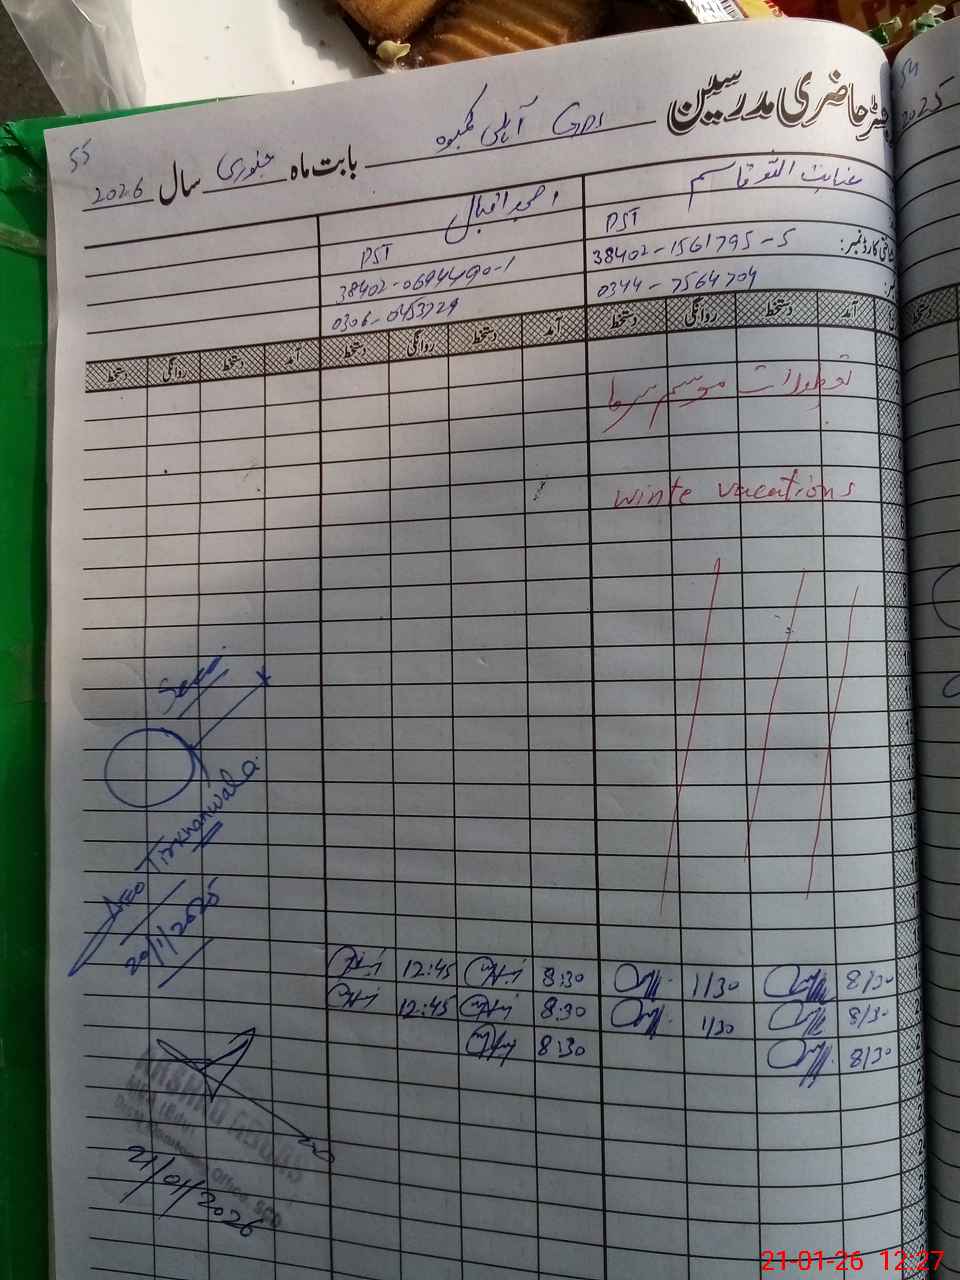 55
رجسٹر حاضری مدرسین GPS آبادی کمبوہ بابت ماہ جنوری سال 2026
54
2025
عنایت اللہ قاسم
احمد اقبال
PST
PST
شناختی کارڈ نمبر: 38402-1561795-5
38402-0694490-1
0344-7564704
0306-0453729
آمد دستخط روانگی دستخط آمد دستخط روانگی دستخط آمد دستخط روانگی دستخط
دستخط
تعطیلات موسم سرما
winte vacations
Seen
AEO Tirkhanwala
20/1/2026
8/30 1/30 8:30 12:45
8/30 1/30 8:30 12:45
8/30 8:30
21/01/2026
21-01-26 12:27